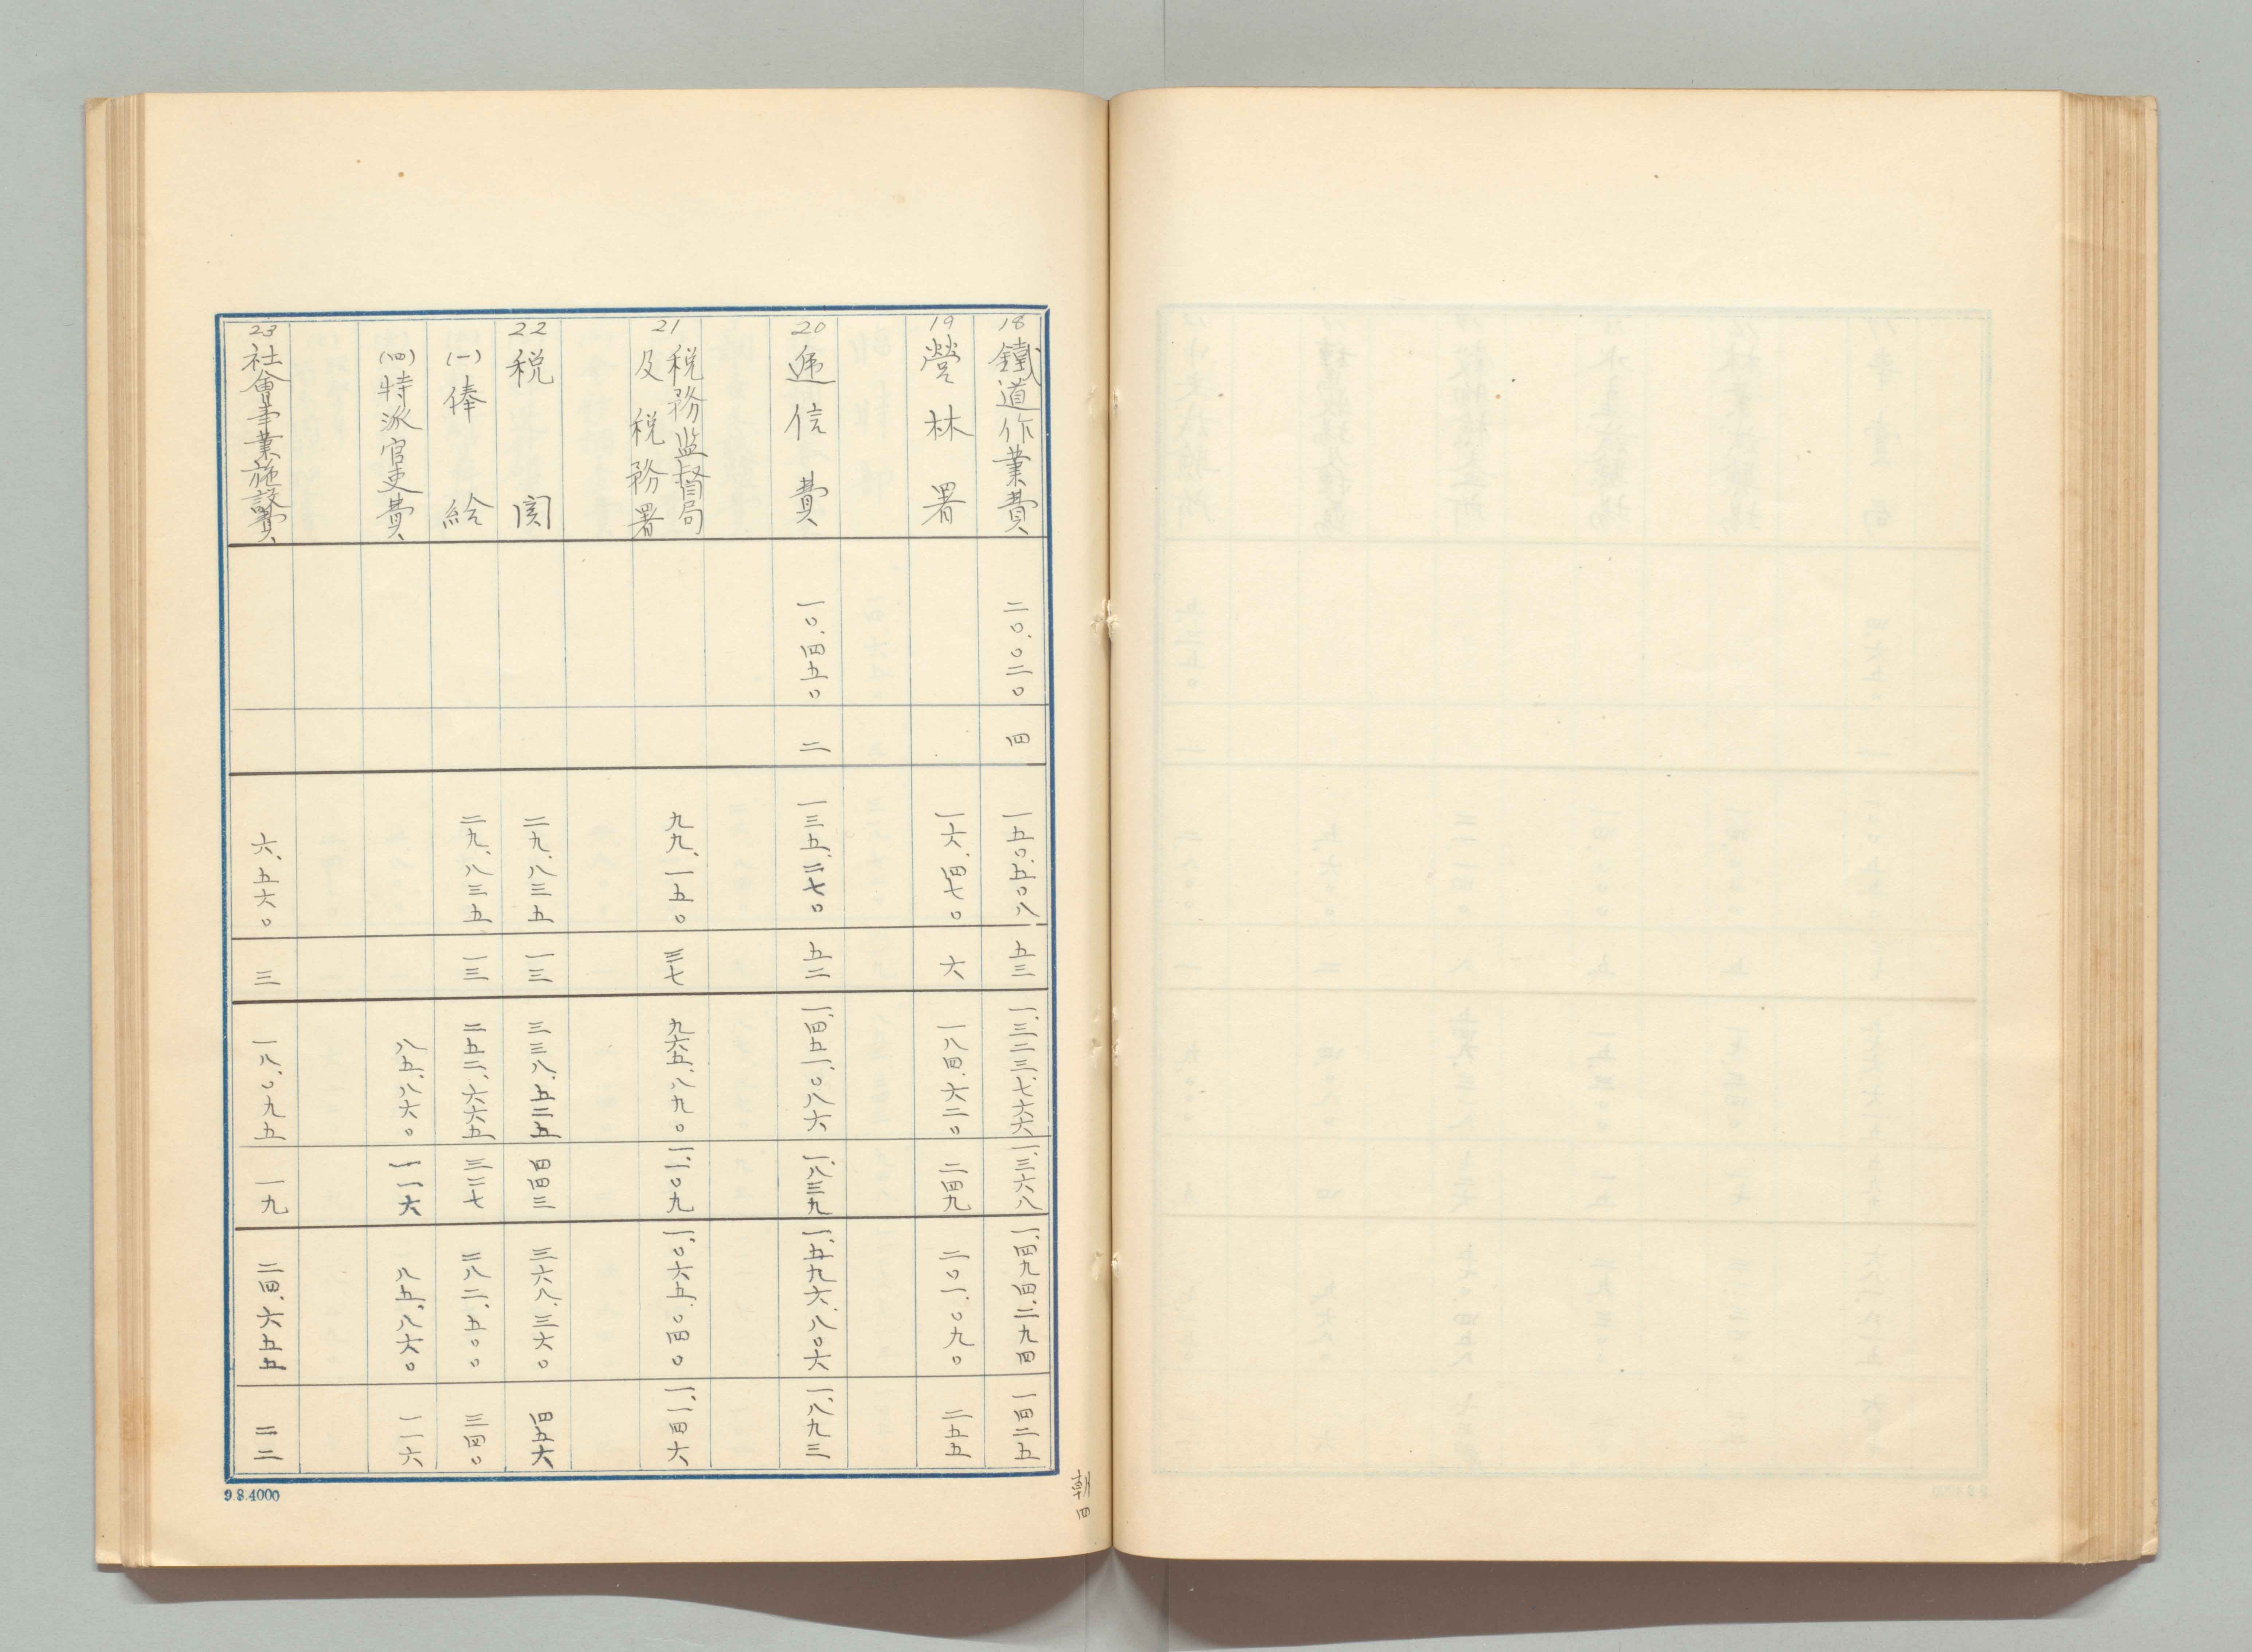 18 鐵道作業費 二〇.〇二〇 四 一五〇.五〇八 五三 一.三二三.七六六 一.三六八 一.四九四.二九四 一四二五
19 營林署 一六.四七〇 六 一八四.六二〇 二四九 二〇一.〇九〇 二五五
20 逓信費 一〇.四五〇 二 一三五.二七〇 五二 一.四五一.〇八六 一.八三九 一.五九六.八〇六 一.八九三
21 税務監督局
及税務署 九九.一五〇 三七 九六五.八九〇 一.一〇九 一.〇六五.〇四〇 一.一四六
22 税関 二九.八三五 一三 三三八.五二五 四四三 三六八.三六〇 四五六
(一)俸給 二九.八三五 一三 二五二.六六五 三二七 二八二.五〇〇 三四〇
(四)特派官吏費 八五.八六〇 一一六 八五.八六〇 一一六
23 社會事業施設費 六.五六〇 三 一八.〇九五 一九 二四.六五五 二二
9.8.4000
朝四